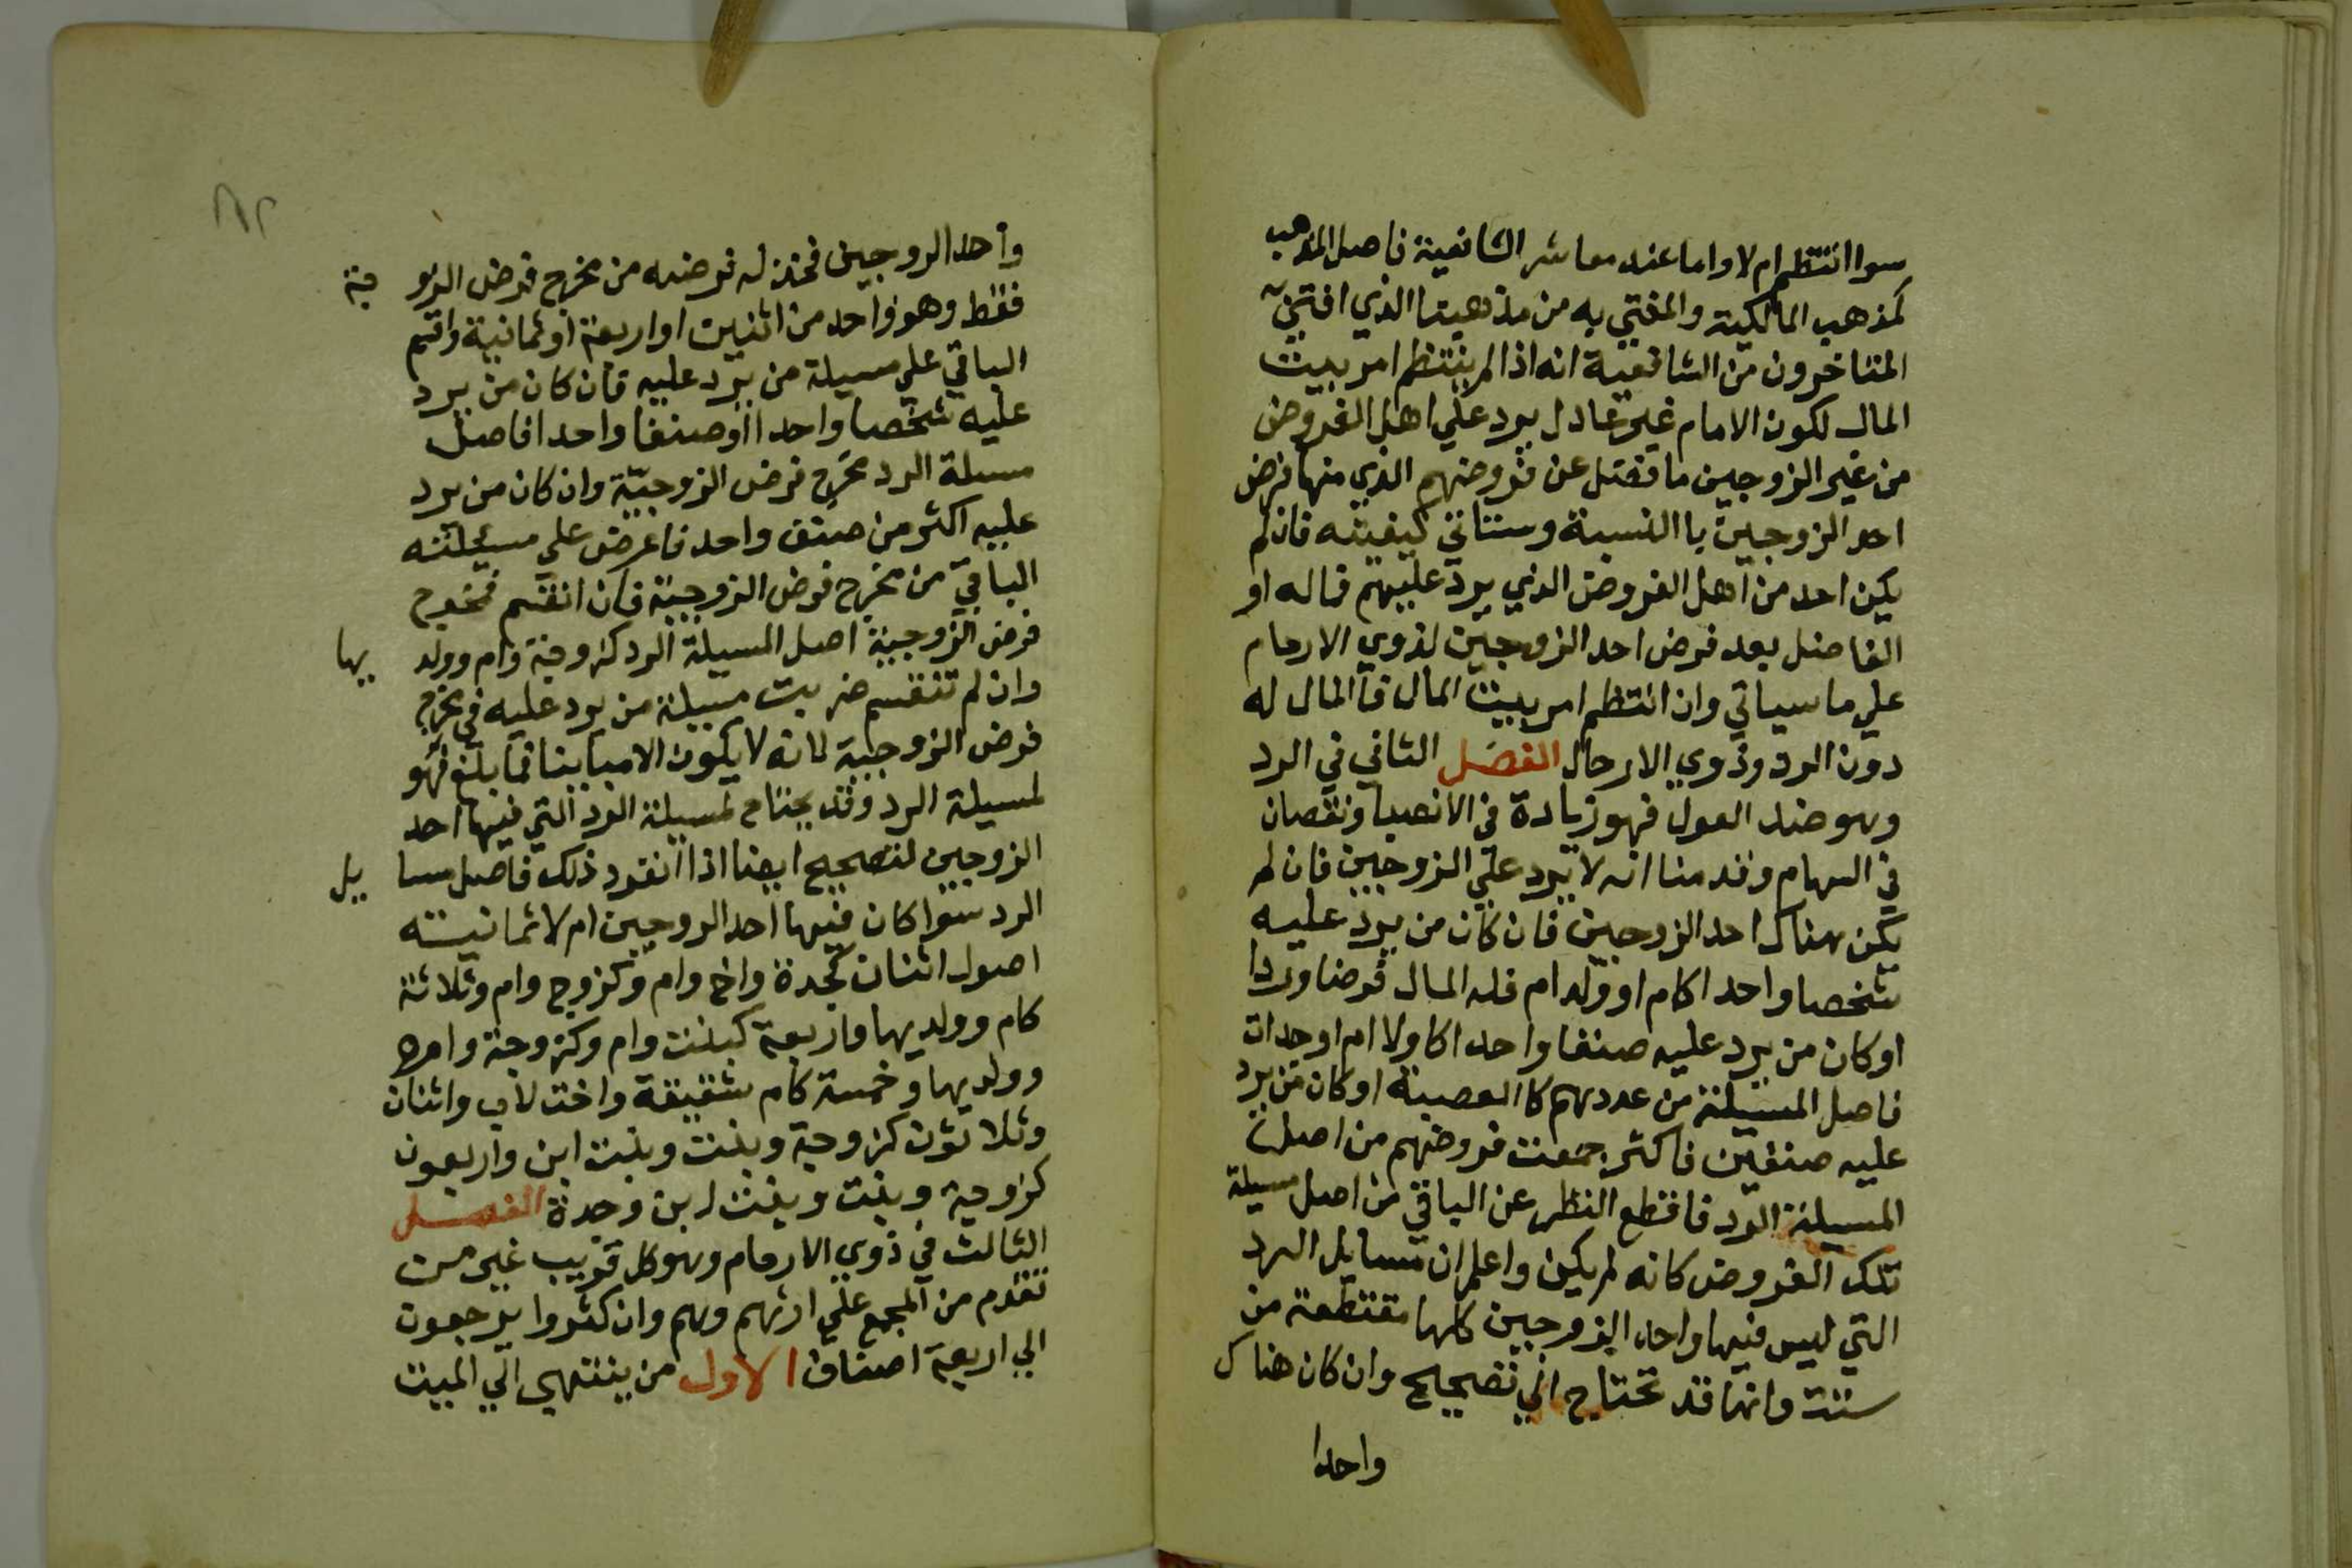 سوا انتظم ام لا واما عند معاشر الشافعية فاصل المذهب
كمذهب المالكية والمفتي به من مذهبنا الذي افتي به
المتاخرون من الشافعية انه اذا لم ينتظم امر بيت
المال لكون الامام غير عادل يرد علي اهل الفروض
من غير الزوجين ما فضل عن فروضهم الذي منها فرض
احد الزوجين باالنسبة وستاتي كيفيته فان لم
يكن احد من اهل الفروض الذي يرد عليهم فماله او
الفاضل بعد فرض احد الزوجين لذوي الارحام
علي ما سياتي وان انتظم امر بيت المال فاالمال له
دون الرد وذوي الارحال الفصل الثاني في الرد
وهو ضد العول فهو زيادة في الانصبا ونقصان
في السهام وقدمنا انه لا يرد علي الزوجين فان لم
يكن هناك احد الزوجين فان كان من يرد عليه
شخصا واحدا كام او ولد ام فله المال فرضا وردا
او كان من يرد عليه صنفا واحدا كاولا ام او جدات
فاصل المسيلة من عددهم كاالعصبة او كان من يرد
عليه صنفين فاكثر جمعت فروضهم من اصل
المسيلة الرد فاقطع النظر عن الباقي من اصل مسيلة
تلك الفروض كانه لم يكن واعلم ان مسايل الرد
التي ليس فيها واحد الزوجين كلها مقتطعة من
ستة وانها قد تحتاج الي تصحيح وان كان هناك
واحدا
واحد الزوجين فخذ له فرضه من مخرج فرض الزو جية
فقط وهو واحد من اثنين او اربعة او ثمانية واقسم
الباقي علي مسيلة من يرد عليه فان كان من يرد
عليه شخصا واحدا اوصنفا واحدا فاصل
مسلة الرد مخرج فرض الزوجية وان كان من يرد
عليه اكثر من صنف واحد فاعرض علي مسيلته
الباقي من مخرج فرض الزوجية فان انقسم فمخرج
فرض الزوجية اصل المسيلة الرد كزوجة وام وولد يها
وان لم تنقسم ضربت مسيلة من يرد عليه في مخرج
فرض الزوجية لانه لا يكون الا مباينا فما بلغ فهو
لمسيلة الرد وقد يحتاج لمسيلة الرد التي فيها احد
الزوجين لتصحيح ايضا اذا انقود ذلك فاصل مسا يل
الرد سوا كان فيها احد الزوجين ام لا ثمانيته
اصول اثنان كجدة واخ وام وكزوج وام وثلاثة
كام وولديها واربعة كبنت وام وكزوجة وام
وولديها وخمسة كام شقيقة واخت لاب واثنان
وثلاثون كزوجة وبنت وبنت ابن واربعون
كزوجة وبنت وبنت ابن وجدة الفصل
الثالث في ذوي الارحام وهو كل قريب غير من
تقدم من المجمع علي ارثهم وهم وان كثروا يرجعون
الي اربعة اصناف الاول من ينتهي الي الميت